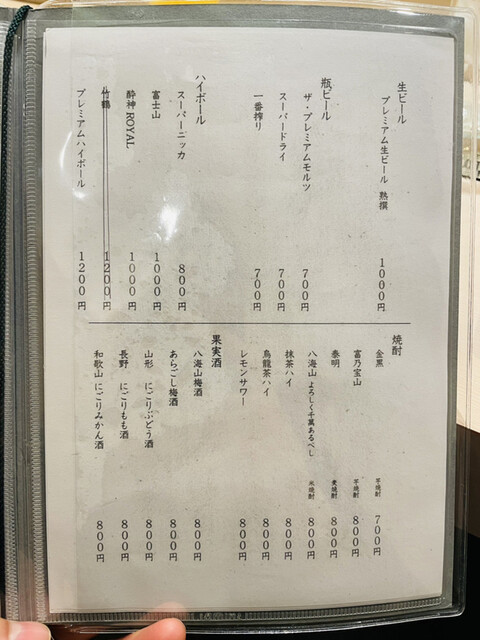 生ビール
プレミアム生ビール 熟撰 1000円
瓶ビール
ザ・プレミアムモルツ 700円
スーパードライ 700円
一番搾り 700円
ハイボール
スーパーニッカ 800円
富士山 1000円
酔神 ROYAL 1000円
竹鶴 1200円
プレミアムハイボール 1200円
焼酎
金黒 芋焼酎 700円
富乃宝山 芋焼酎 800円
泰明 麦焼酎 800円
八海山 よろしく千萬あるべし 米焼酎 800円
抹茶ハイ 800円
烏龍茶ハイ 800円
レモンサワー 800円
果実酒
八海山梅酒 800円
あらごし梅酒 800円
山形 にごりぶどう酒 800円
長野 にごりもも酒 800円
和歌山 にごりみかん酒 800円